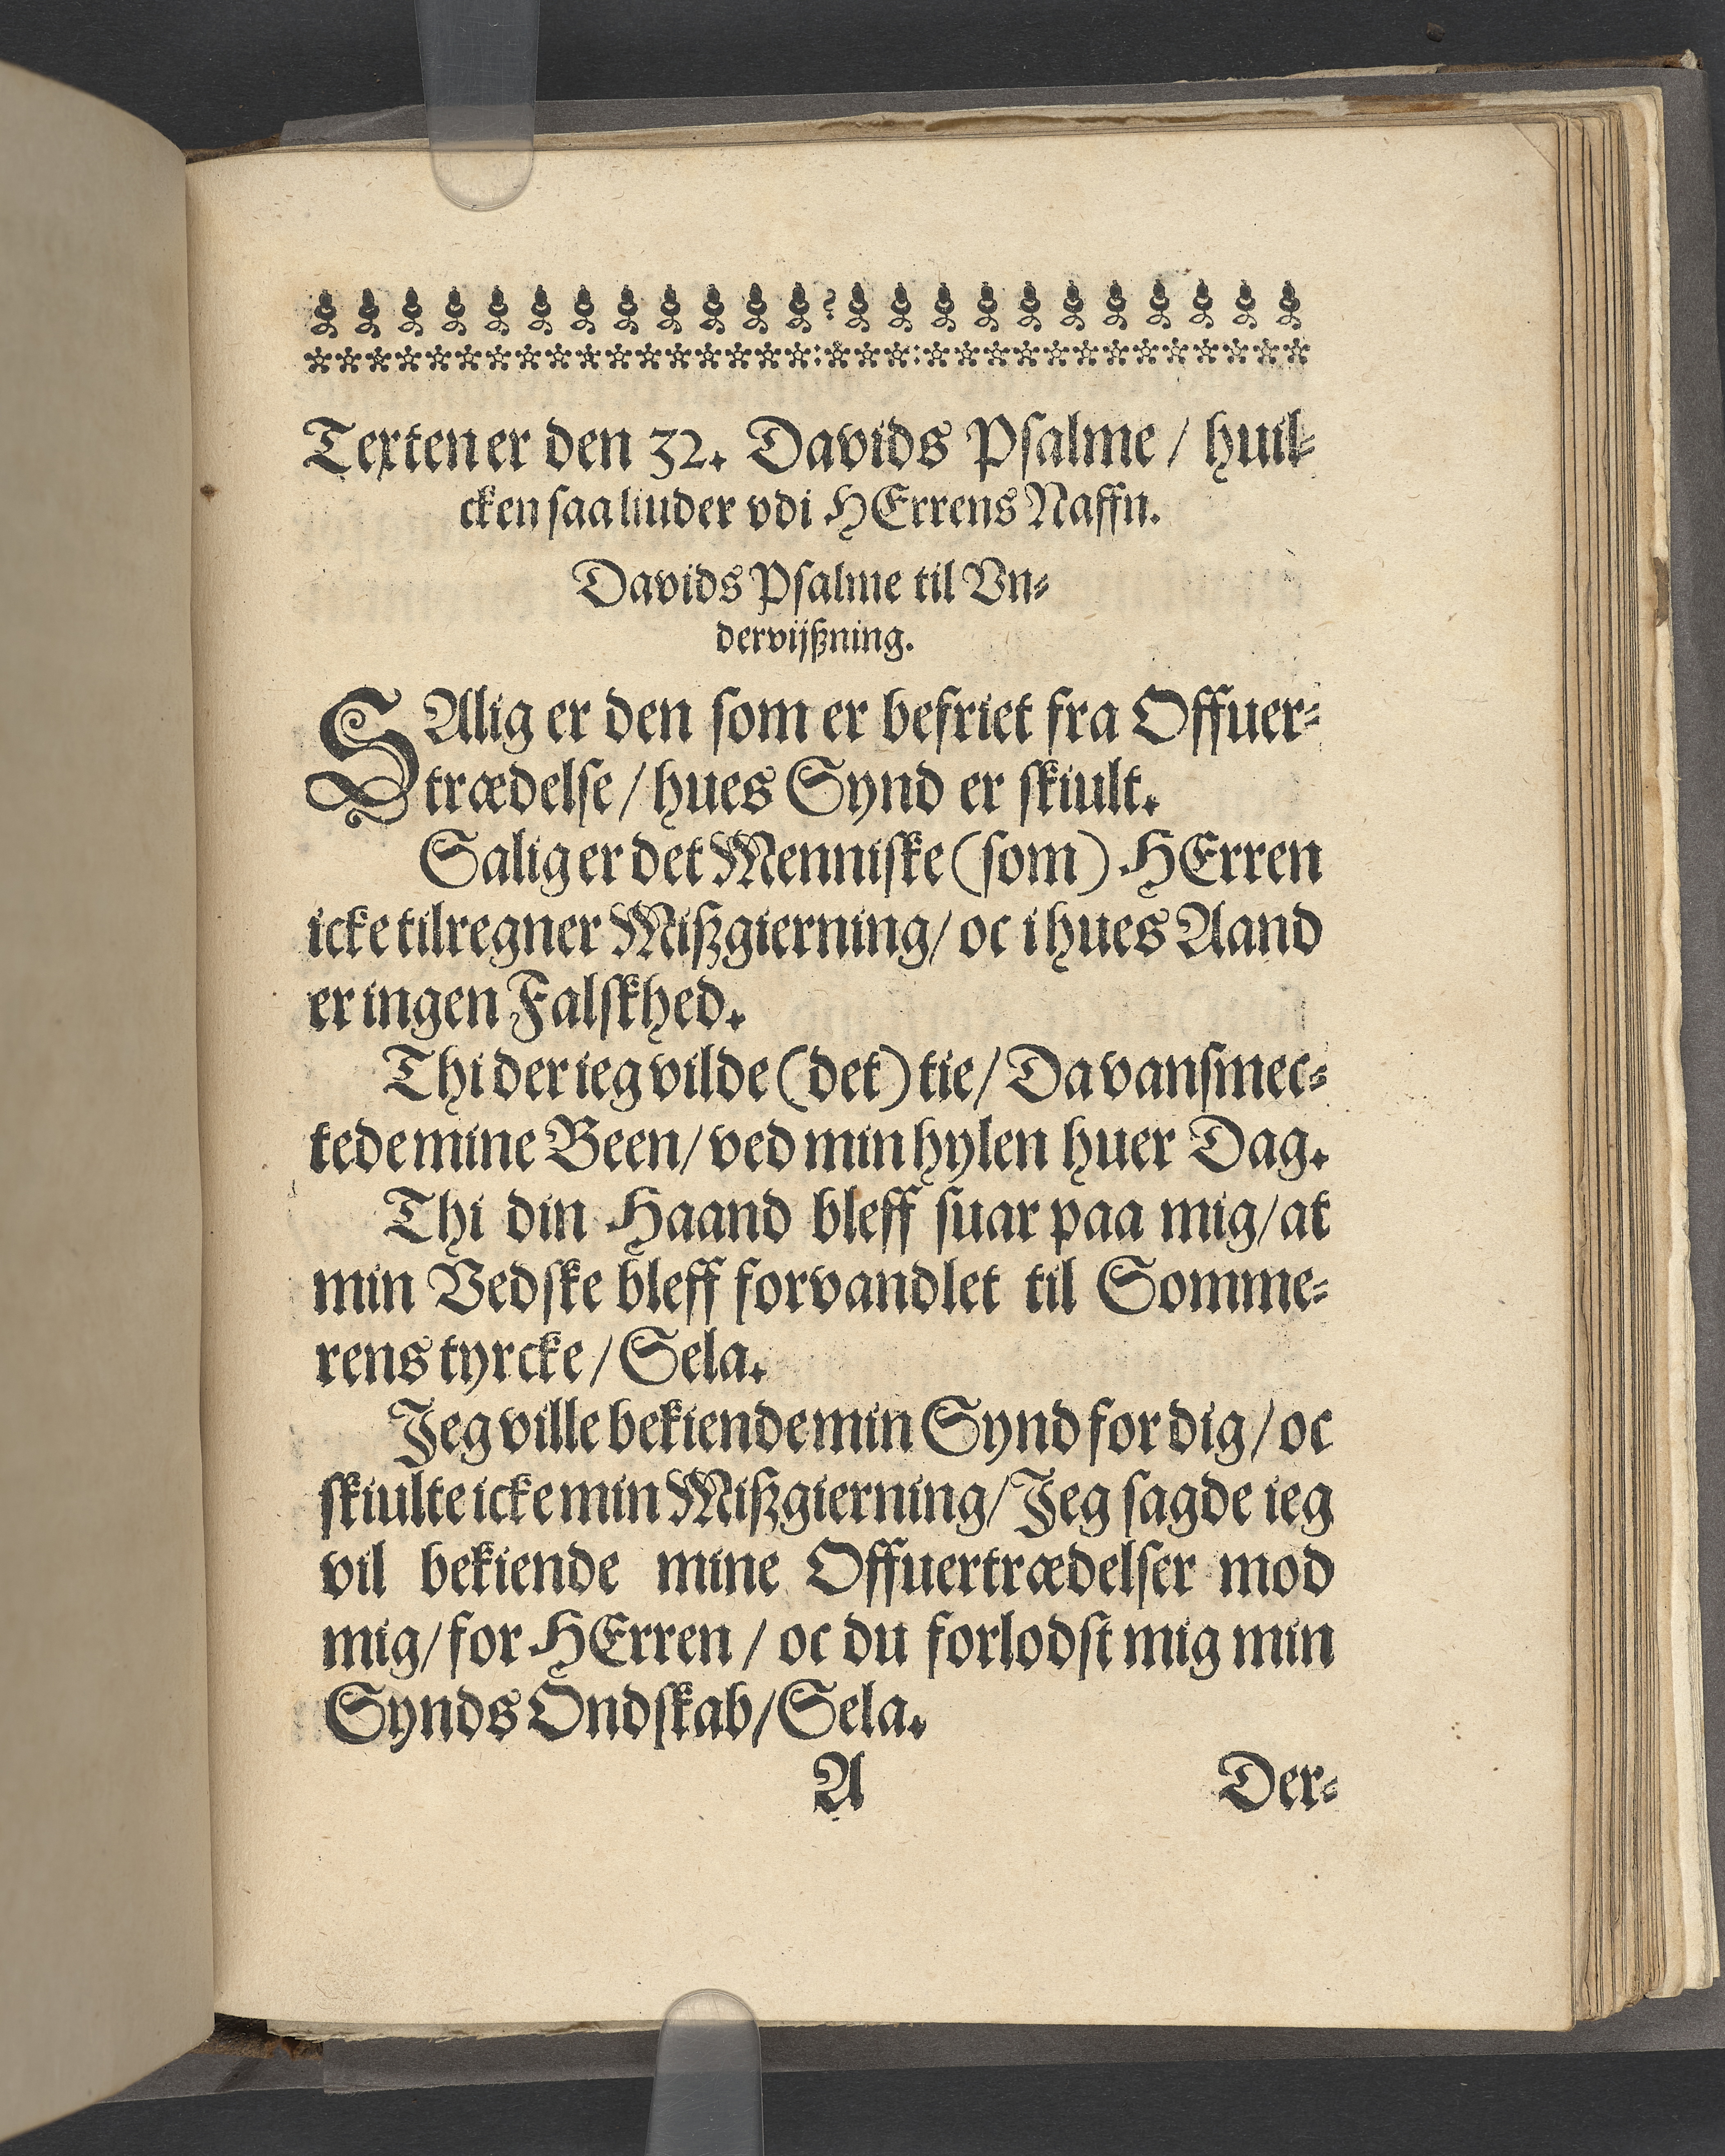 Texten er den 32. Davids Psalme / huil-
cken saa liuder vdi HErrens Naffn.
Davids Psalme til Vn-
dervijßning.
SAlig er den som er befriet fra Offuer-
trædelse / hues Synd er skiult.
Salig er det Menniske (som) HErren
icke tilregner Mißgierning / oc i hues Aand
er ingen Falskhed.
Thi der ieg vilde (det) tie / Da vansmec-
tede mine Been / ved min hylen huer Dag.
Thi din Haand bleff suar paa mig / at
min Vedske bleff forvandlet til Somme-
rens tyrcke / Sela.
Jeg ville bekiende min Synd for dig / oc
skiulte icke min Mißgierning / Jeg sagde ieg
vil bekiende mine Offuertrædelser mod
mig / for HErren / oc du forlodst mig min
Synds Ondskab / Sela.
A Der-